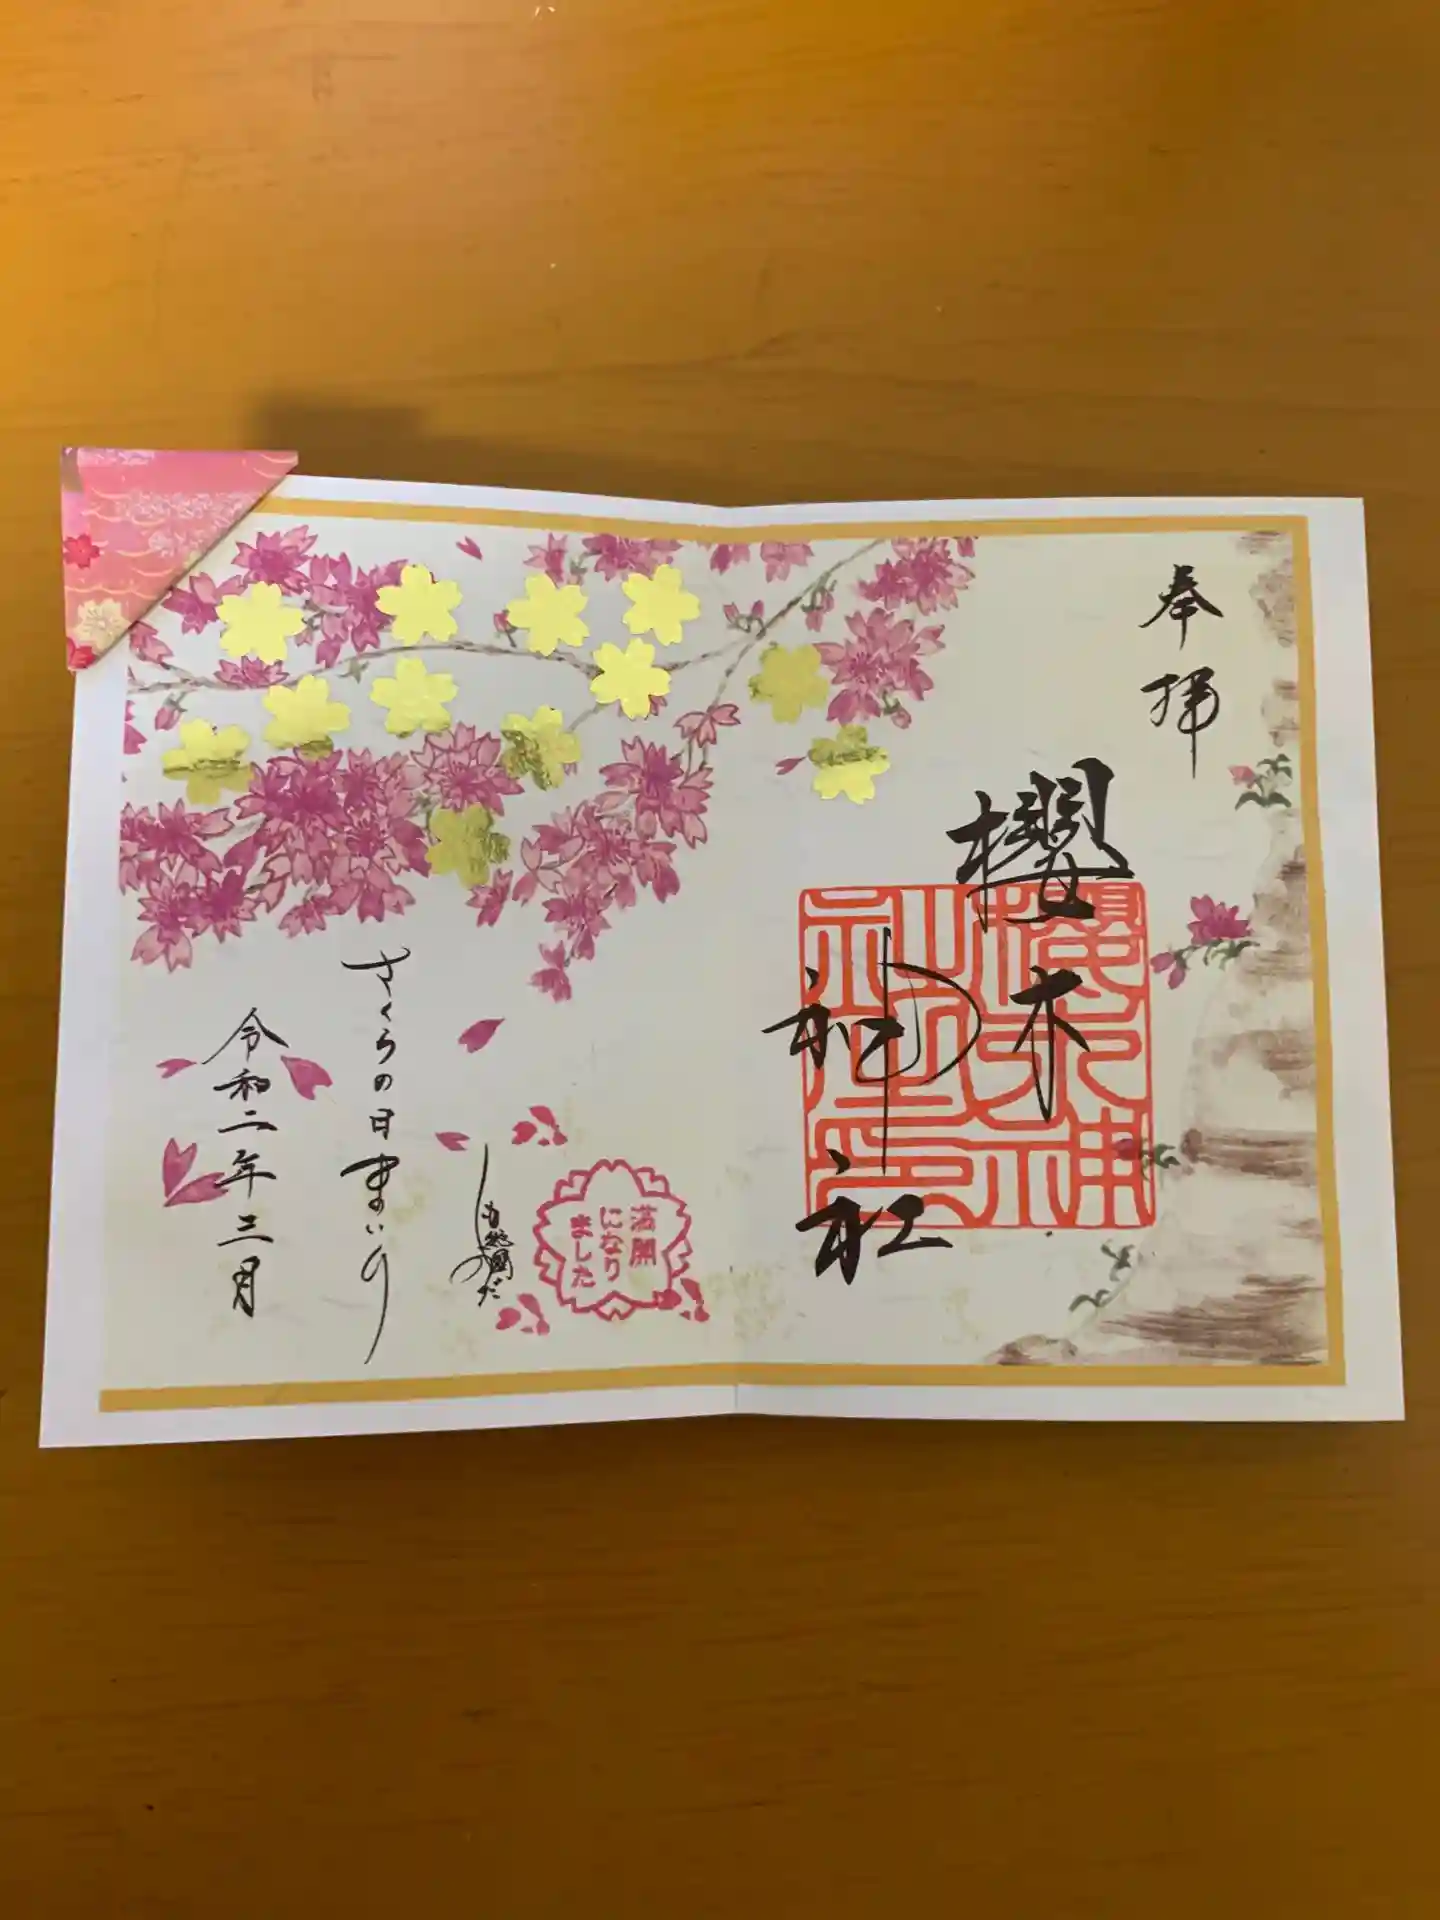 奉拝
櫻木
神社
満開
になり
ました
さくらの日まいり
令和二年三月